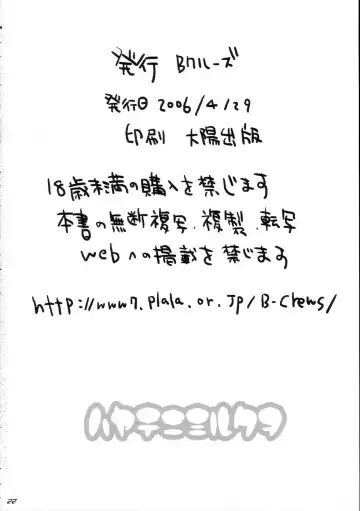 発行 Bクルーズ
発行日 2006/4/29
印刷 大陽出版
18歳未満の購入を禁じます
本書の無断複写、複製、転写
webへの掲載を禁じまる
http://www7.plala.or.jp/B-Crews/
ハヤテニミルクヲ
22